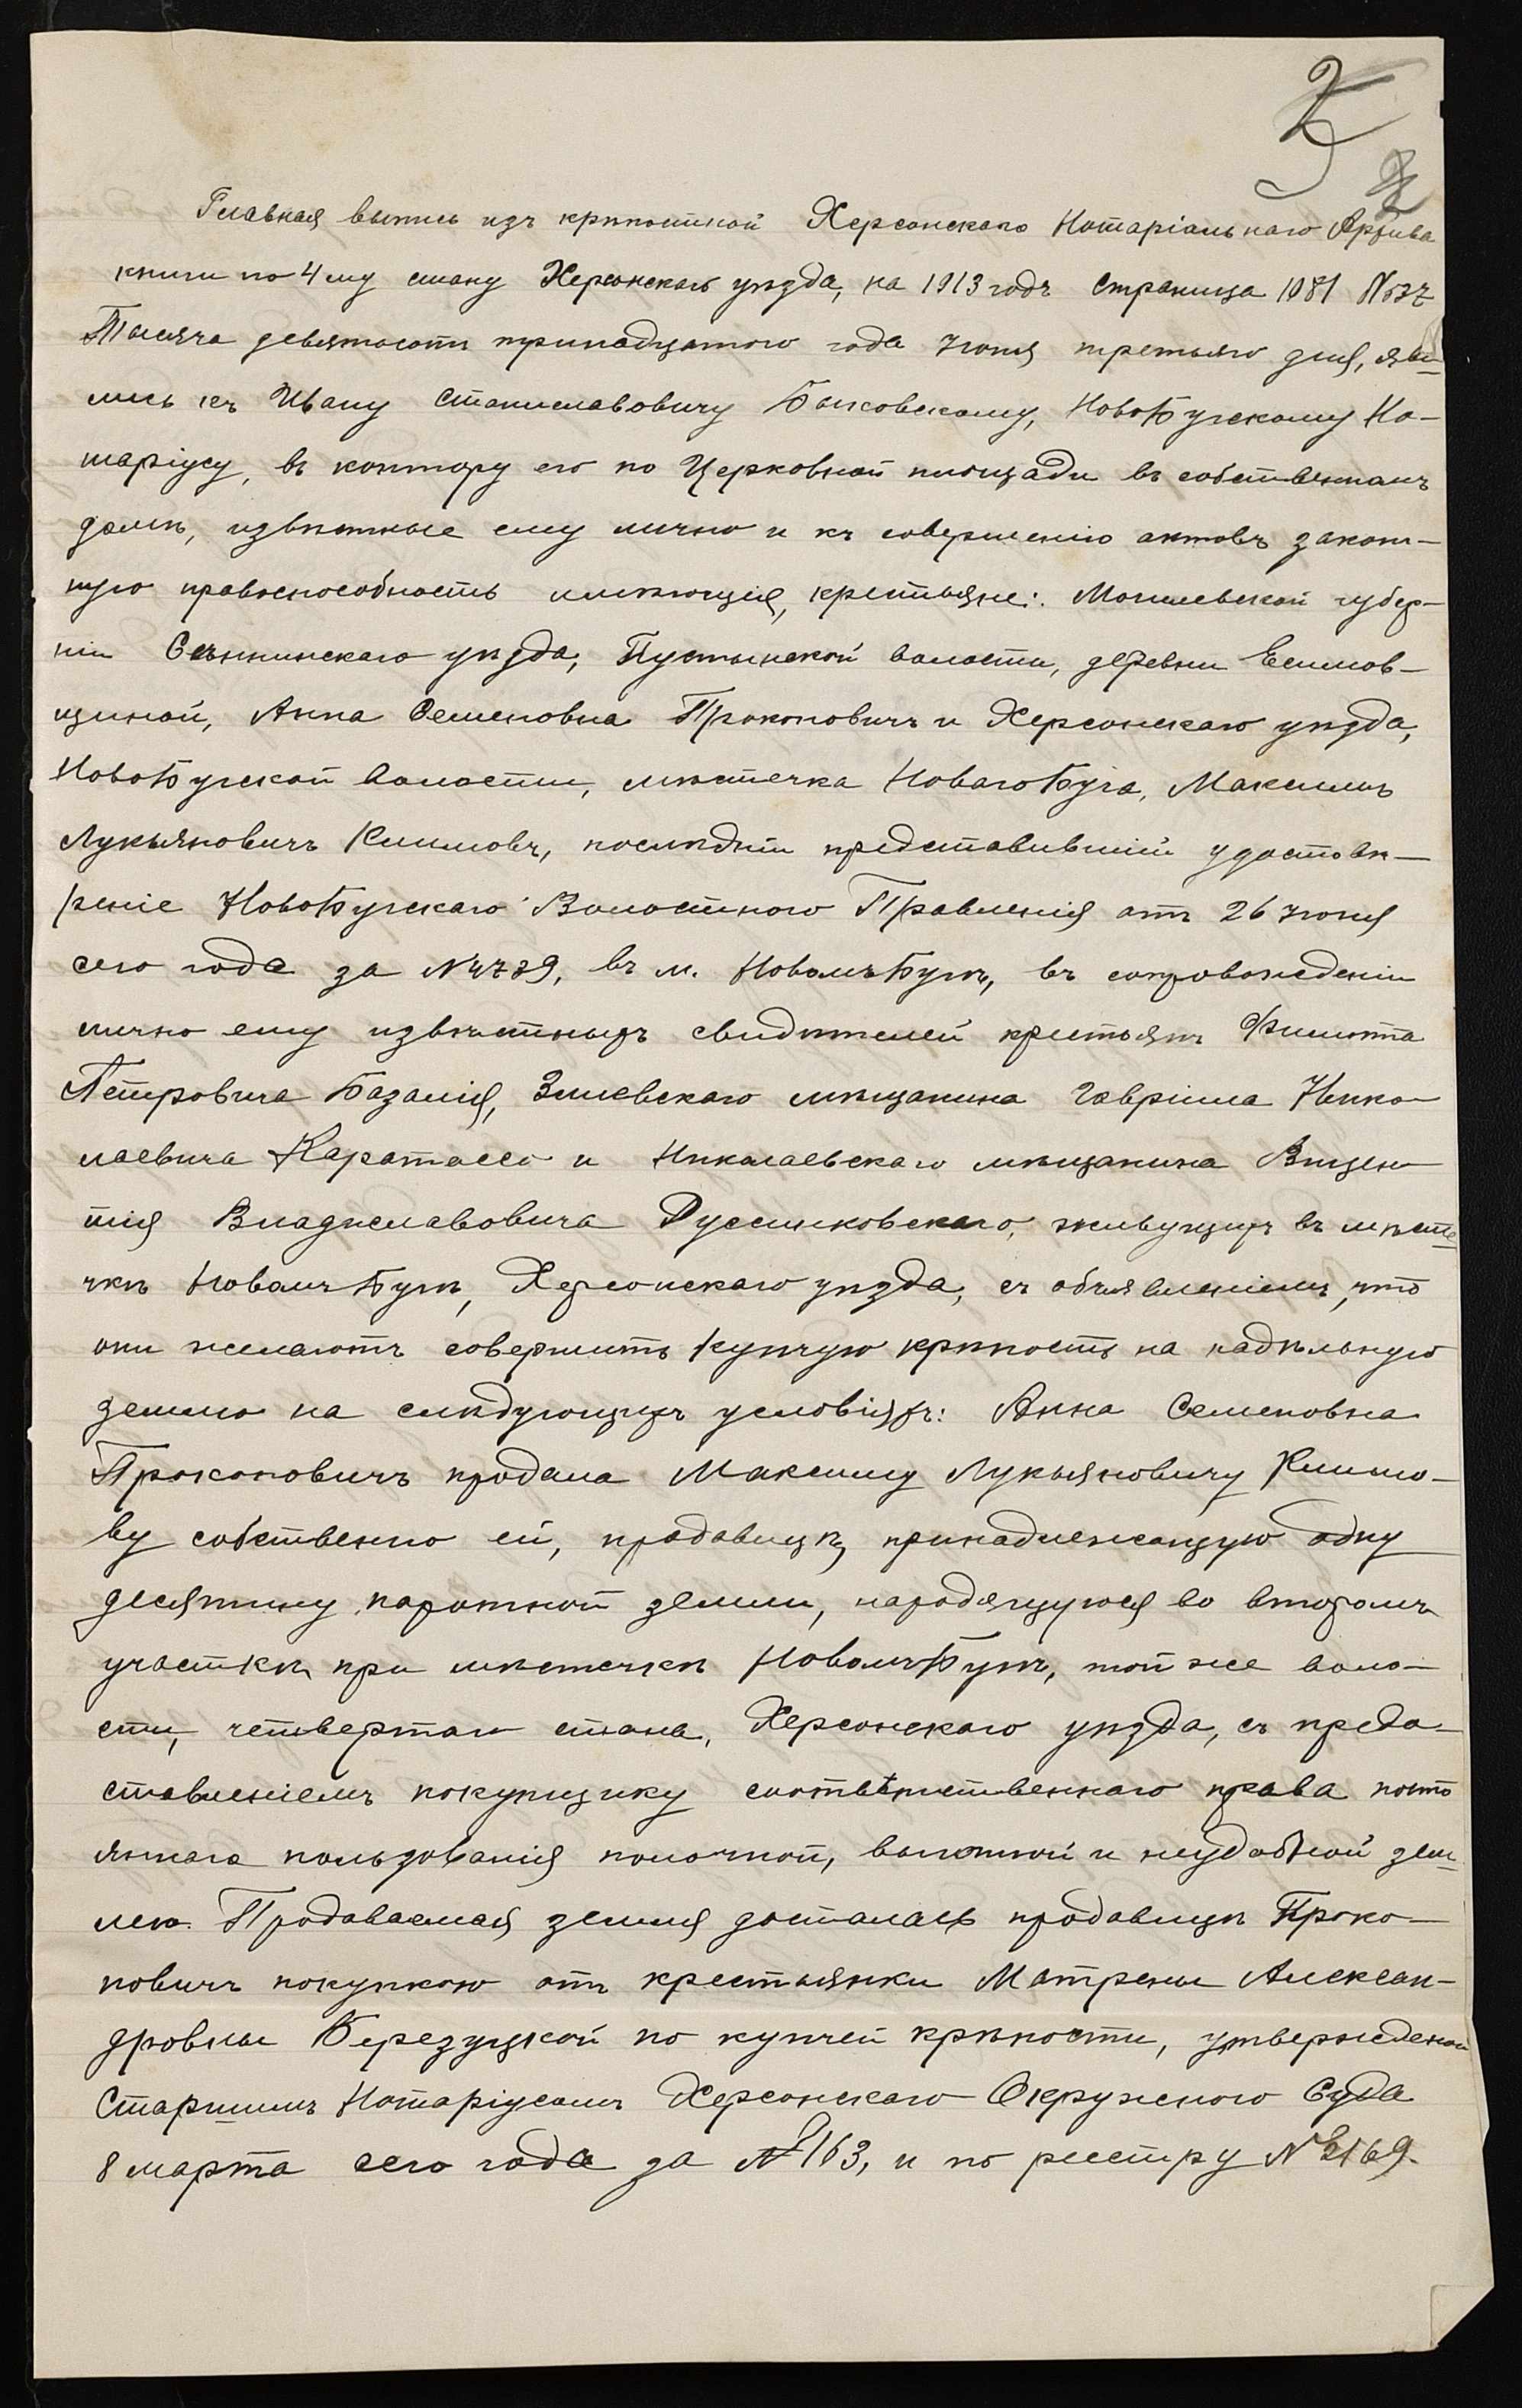 Главная выпись изъ крѣпостной Херсонскаго Нотаріальнаго Архива
книги по 4му стану Херсонскаго уѣзда, на 1913 годъ страница 1081 №
Тысяча девятьсотъ тринадцатого года Іюня третьяго дня, яви-
лись къ Ивану Станиславовичу Быковскому, НовоБугскому Но-
таріусу, въ контору его по Церковной площади въ собственномъ
домѣ, извѣстные ему лично и къ совершенію актовъ закон-
ную правоспособность имѣющія, крестьяне: Могилевской губер-
ніи Сѣннинскаго уѣзда, Пустынской волости, деревни
Анна Семеновна Прокоповичъ и Херсонскаго уѣзда,
НовоБугской волости, мѣстечка НовагоБуга, Максимъ
Лукьяновичъ Климовъ, послѣдній представившій удостовѣ-
реніе НовоБугскаго Волостного Правленія отъ 26 Іюня
сего года за №4739, въ м. НовомъБугѣ, въ сопровожденіи
лично ему извѣстныхъ свидѣтелей крестьянъ Филиппа
Петровича Базалія, Зміевскаго мѣщанина Гавріила Нико-
лаевича и Николаевскаго мѣщанина Викен-
тія Владиславовича живущихъ въ мѣсте-
чкѣ НовомъБугѣ, Херсонскаго уѣзда, съ объявленіемъ, что
они желаютъ совершить купчую крѣпость на надѣльную
землю на слѣдующихъ условіяхъ: Анна Семеновна
Прокоповичъ продала Максиму Лукьяновичу Климо-
ву собственно ей, продавщицѣ, принадлежащую одну
десятину пахотной земли, находящуюся во второмъ
участкѣ, при мѣстечкѣ НовомъБугѣ, той же воло-
сти, четвертаго стана, Херсонскаго уѣзда, съ предо-
ставленіемъ покупщику соотвѣтственнаго права посто
яннаго пользованія толочной, выгонной и неудобной зем-
лею. Продаваемая земля досталась продавщицѣ Проко-
повичъ покупкою отъ крестьянки Матрены Алексан-
дровны Березуцкой по купчей крѣпости, утвержденной
Старшимъ Нотаріусомъ Херсонскаго Окружного Суда
8 марта сего года за №163, и по реестру №2169.